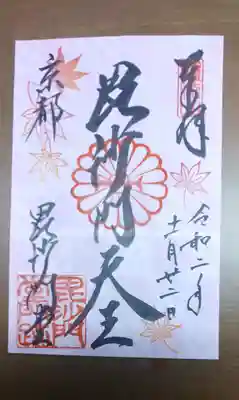 奉拝
令和二年
十一月廿二日
毘沙門天王
京都
毘沙門堂
毘沙門